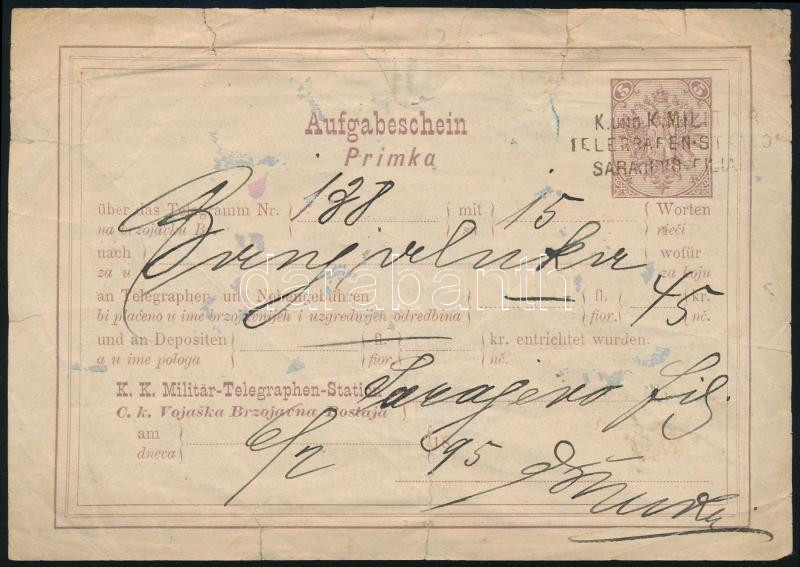 5 5
K. UND K. MIL
TELEGRAFEN-ST
SARAJEVO-FILIAL
Aufgabeschein
Primka
über das Telegramm Nr. 138 mit 15 Worten
na brzojavku B s rieči
nach Banjaluka wofür
za u za koju
an Telegraphen- und Nebengebühren — fl. 45 kr.
bi plaćeno u ime brzojavnijeh i uzgrednijeh odredbina fior. nč.
und an Depositen fl. kr. entrichtet wurden.
a u ime pologa fior. nč.
K. K. Militär-Telegraphen-Station Sarajevo fil.
C. k. Vojaška Brzojavna Postaja
am 18 95
dneva
darabanth